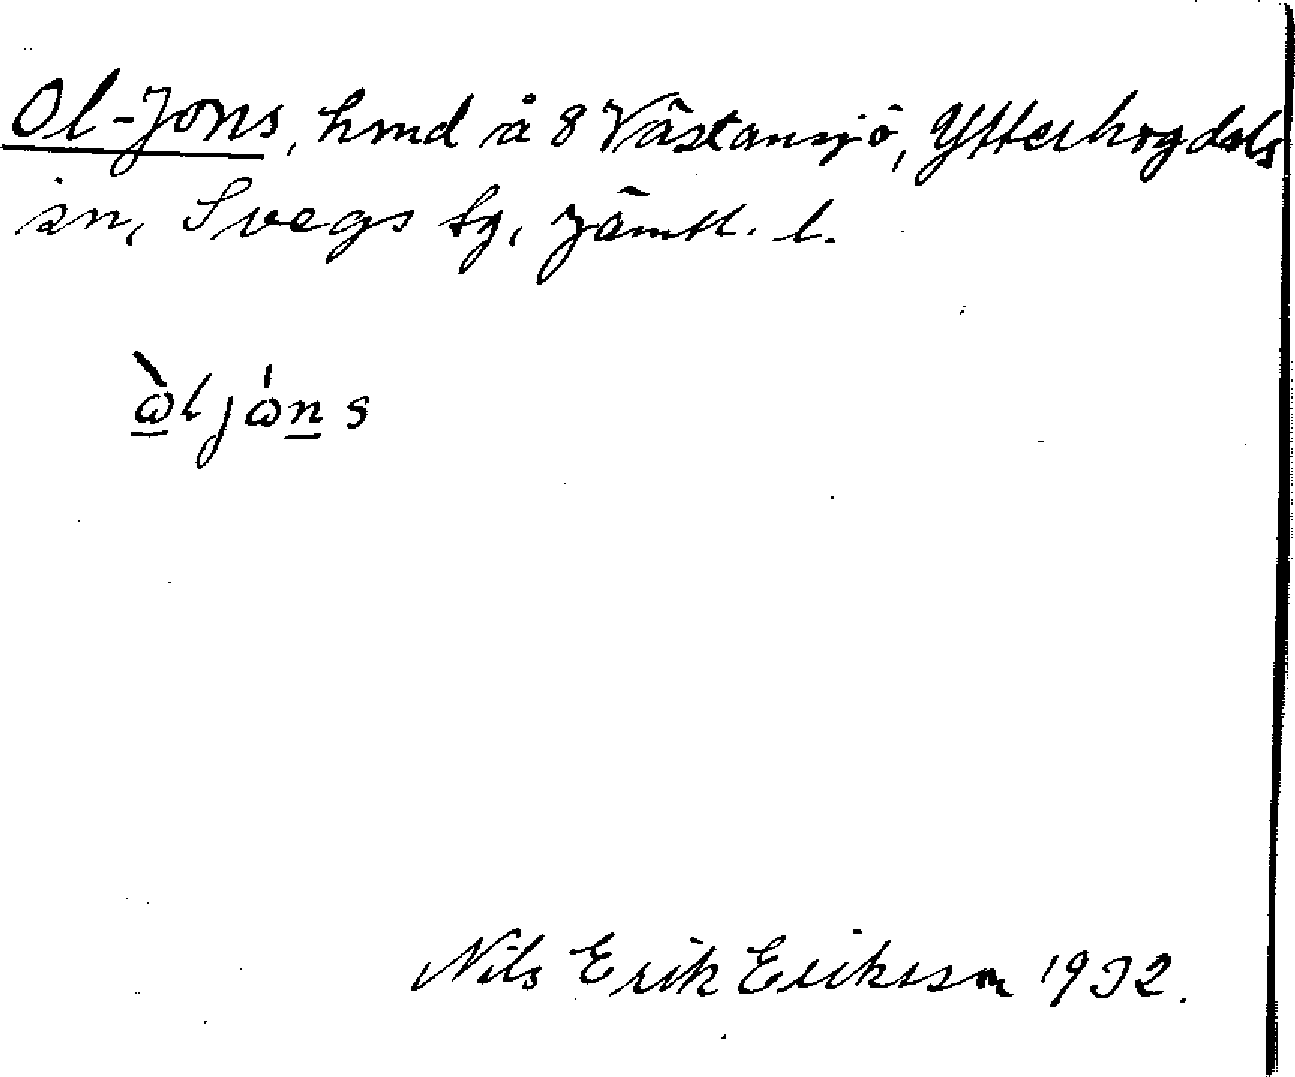 Ol-Jons, hmd å 8 Västansjö, Ytterhogdals
sn, Svegs tg, Jämtl. l.
ὼljώns
Nils Erik Eriksson 1932.